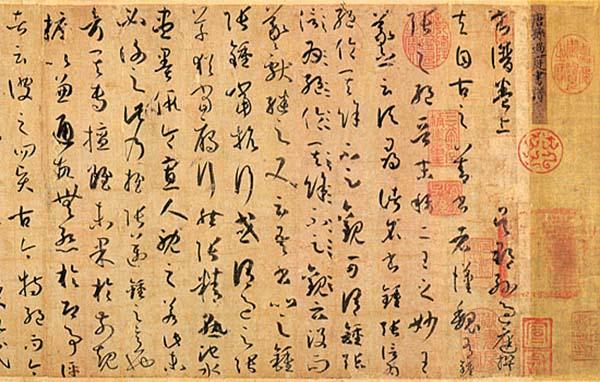 唐孫過庭書譜
書譜卷上 吳郡孫過庭撰
夫自古之善書者漢魏有鍾
張之絕晉末稱二王之妙王
羲之云頃尋諸名書鍾張信為
絕倫其餘不足觀可謂鍾張
信為絕倫其餘不足觀云沒而
羲獻繼之又云吾書比之鍾
張鍾當抗行或謂過之張
草猶當鴈行然張精熟池水
盡墨假令寡人耽之若此未
必謝之此乃推張邁鍾之意也
考其專擅雖未果於前規
摭以兼通故無慚於即事評
者云彼之四賢古今特絕而今